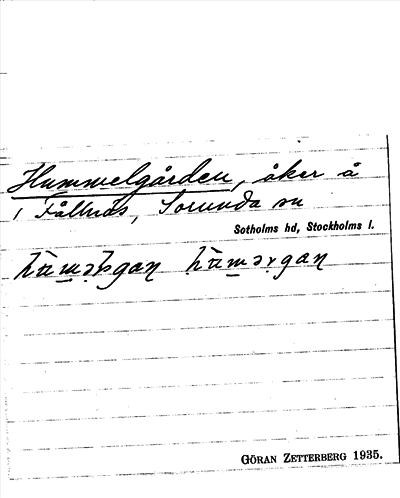 Hummelgården, åker å
1 Fållnäs, Sorunda sn
Sotholms hd, Stockholms l.
GÖRAN ZETTERBERG 1935.